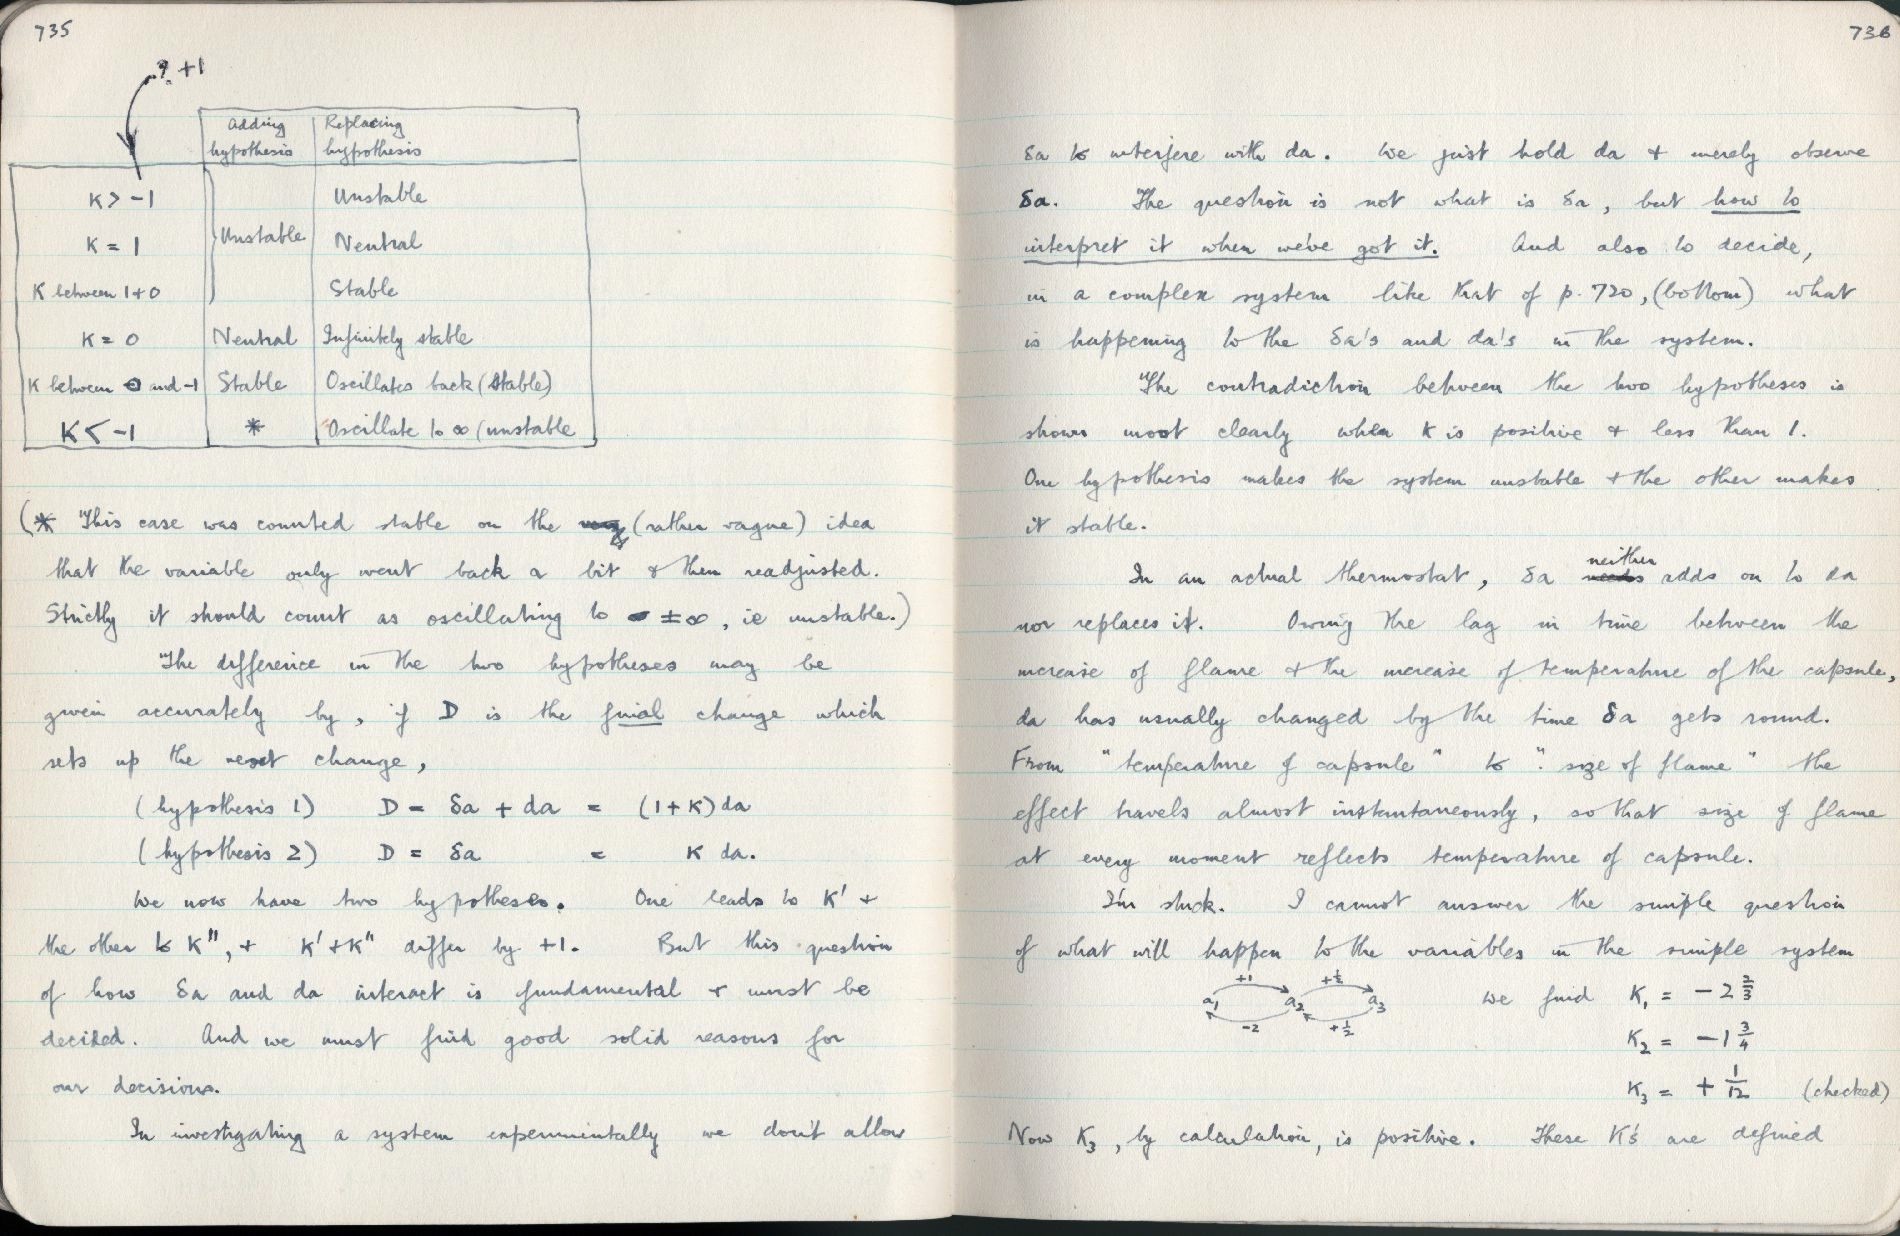 735
? +1
Adding hypothesis | Replacing hypothesis
K > -1 | Unstable | Unstable
K = 1 | Neutral
K between 1 + 0 | Stable
K = 0 | Neutral | Infinitely stable
K between 0 and -1 | Stable | Oscillates back (stable)
K < -1 | * | Oscillate to ∞ (unstable
(* This case was counted stable on the (rather vague) idea
that the variable only went back a bit & then readjusted.
Strictly it should count as oscillating to ±∞, ie unstable.)
The difference in the two hypotheses may be
given accurately by, if D is the final change which
sets up the next change,
(hypothesis 1) D = δa + da = (1+K)da
(hypothesis 2) D = δa = K da.
We now have two hypotheses. One leads to K' +
the other to K", + K' + K" differ by +1. But this question
of how δa and da interact is fundamental + must be
decided. And we must find good solid reasons for
our decisions.
In investigating a system experimentally we don't allow
736
δa to interfere with da. We just hold da + merely observe
δa. The question is not what is δa, but how to
interpret it when we've got it. And also to decide,
in a complex system like that of p. 720, (bottom) what
is happening to the δa's and da's in the system.
The contradiction between the two hypotheses is
shown most clearly when K is positive + less than 1.
One hypothesis makes the system unstable + the other makes
it stable.
In an actual thermostat, δa neither adds on to da
nor replaces it. Owing the lag in time between the
increase of flame + the increase of temperature of the capsule,
da has usually changed by the time δa gets round.
From "temperature of capsule" to "size of flame" the
effect travels almost instantaneously, so that size of flame
at every moment reflects temperature of capsule.
I'm stuck. I cannot answer the simple question
of what will happen to the variables in the simple system
a₁ +1 -2 a₂ +½ +½ a₃ We find K₁ = -2 2/3
K₂ = -1 3/4
K₃ = + 1/12 (checked)
Now K₃, by calculation, is positive. These K's are defined